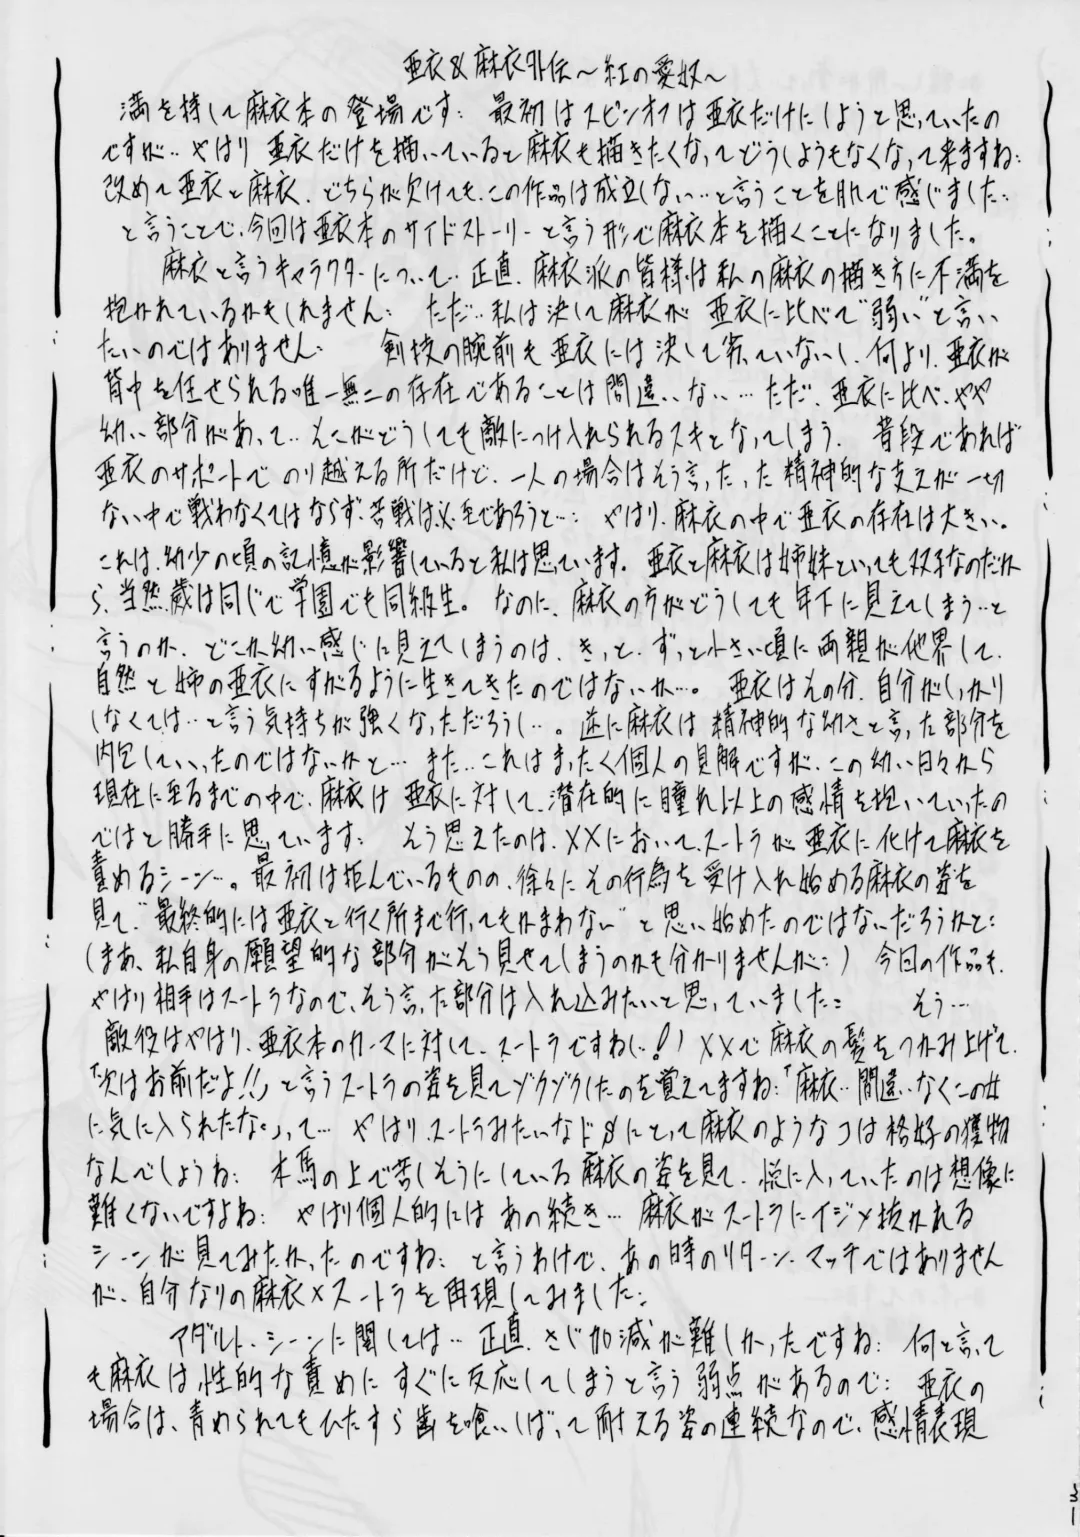 亜衣&麻衣外伝〜紅の愛奴〜
満を持して麻衣本の登場です: 最初はスピンオフは亜衣だけにしようと思っていたの
ですが‥やはり 亜衣だけを描いていると麻衣も描きたくなってどうしようもなくなって来ますね:
改めて亜衣と麻衣、どちらが欠けても、この作品は成立しない…と言うことを肌で感じました:
と言うことで、今回は亜衣本のサイドストーリーと言う形で麻衣本を描くことになりました。
麻衣と言うキャラクターについて‥正直、麻衣派の皆様は私の麻衣の描き方に不満を
抱かれているかもしれません: ただ‥私は決して麻衣が 亜衣に比べて"弱い"と言い
たいのではありません: 剣技の腕前も亜衣には決して劣っていないし、何より、亜衣が
背中を任せられる唯一無二の存在であることは間違いない…ただ、亜衣に比べ、やや
幼い部分があって‥そこがどうしても敵につけ入れられるスキとなってしまう。 普段であれば
亜衣のサポートで のり越える所だけど、一人の場合はそう言った精神的な支えが一切
ない中で戦わなくてはならず、苦戦は必至であろうと…: やはり、麻衣の中で亜衣の存在は大きい。
これは、幼少の頃の記憶が影響していると私は思っています。亜衣と麻衣は姉妹といっても双子なのだか
ら、当然歳は同じで学園でも同級生。なのに、麻衣の方がどうしても年下に見えてしまう…と
言うのか、どこか幼い感じに見えてしまうのは、きっと、ずっと小さい頃に両親が他界して、
自然と姉の亜衣にすがるように生きてきたのではないか…。 亜衣はその分、自分がしっかり
しなくては…と言う気持ちが強くなっただろうし…。逆に麻衣は精神的な幼さと言った部分を
内包していったのではないかと…また‥これはまったく個人の見解ですが、この幼い日々から
現在に至るまでの中で、麻衣は 亜衣に対して、潜在的に憧れ以上の感情を抱いていったの
ではと勝手に思っています: そう思えたのは、××において、スートラが亜衣に化けて麻衣を
責めるシーン…。最初は拒んでいるものの、徐々にその行為を受け入れ始める麻衣の姿を
見て"最終的には亜衣と行く所まで行ってもかまわない"と思い始めたのではないだろうかと:
(まあ、私自身の願望的な部分がそう見せてしまうのかも分かりませんが:) 今回の作品も、
やはり相手はスートラなので、そう言った部分は入れ込みたいと思っていました: そう…
敵役はやはり、亜衣本のカーマに対して、スートラですね(…!)××で麻衣の髪をつかみ上げて、
「次はお前だよ!!」と言うスートラの姿を見てゾクゾクしたのを覚えてますね:「麻衣‥間違いなくこの女
に気に入られたな。」って…やはり、スートラみたいなドSにとって麻衣のようなコは格好の獲物
なんでしょうね: 木馬の上で苦しそうにしている麻衣の姿を見て、悦に入っていたのは想像に
難くないですよね: やはり個人的には あの続き…麻衣がスートラにイジメ抜かれる
シーンが見てみたかったのですね: と言うわけで、あの時のリターン・マッチではありません
が、自分なりの麻衣×スートラを再現してみました:
アダルト・シーンに関しては…正直、さじ加減が難しかったですね: 何と言って
も麻衣は、性的な責めにすぐに反応してしまうと言う弱点があるので: 亜衣の
場合は、責められてもひたすら歯を喰いしばって耐える姿の連続なので、感情表現
31